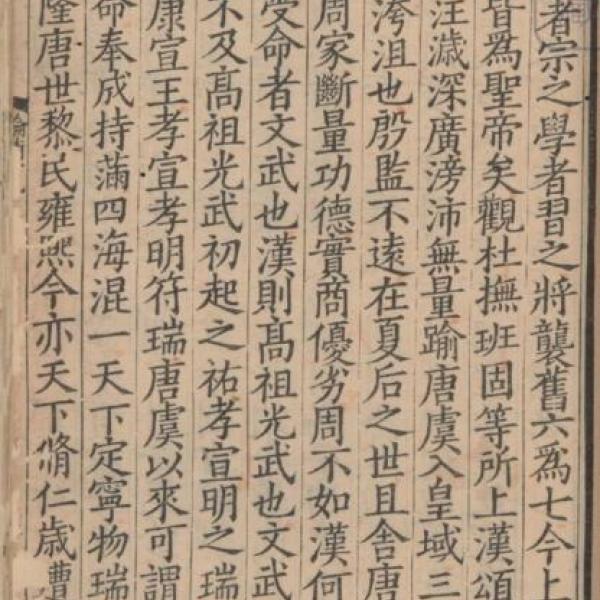 者宗之學者習之將襲舊六爲七今上
皆爲聖帝矣觀杜撫班固等所上漢頌
汪濊深廣滂沛無量踰唐虞入皇域三
洿沮也殷監不遠在夏后之世且舍唐
周家斷量功德實商優劣周不如漢何
受命者文武也漢則髙祖光武也文武
不及髙祖光武初起之祐孝宣明之瑞
康宣王孝宣孝明符瑞唐虞以來可謂
命奉成持滿四海混一天下定寧物瑞
隆唐世黎民雍熙今亦天下脩仁歳